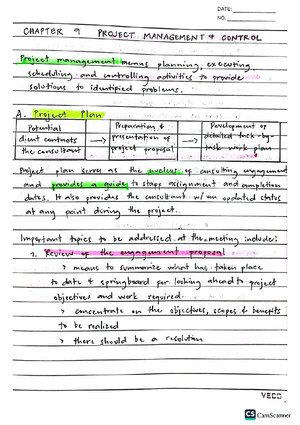 DATE:
NO.:
CHAPTER 9 PROJECT MANAGEMENT & CONTROL
Project management means planning, executing,
scheduling and controlling activities to provide
solutions to identified problems.
A. Project Plan
Potential client contacts the consultant → Preparation & presentation of project proposal → Development of detailed task-by-task work plan
Project plan serves as the nucleus of consulting engagement
and provides a guide to staff assignment and completion
dates. It also provides the consultant w/ an updated status
at any point during the project.
Important topics to be addressed at the meeting include:
1. Review of the engagement proposal
> means to summarize what has taken place
to date & springboard for looking ahead to project
objectives and work required.
> concentrate on the objectives, scopes & benefits
to be realized
> there should be a resolution
VECO
CS CamScanner